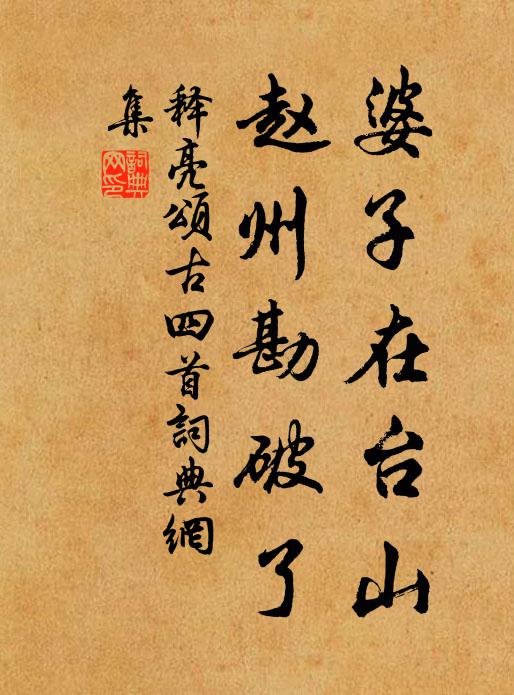 婆子在台山
赵州勘破了
释亮頌古四首詞典網
集
詞典
网印